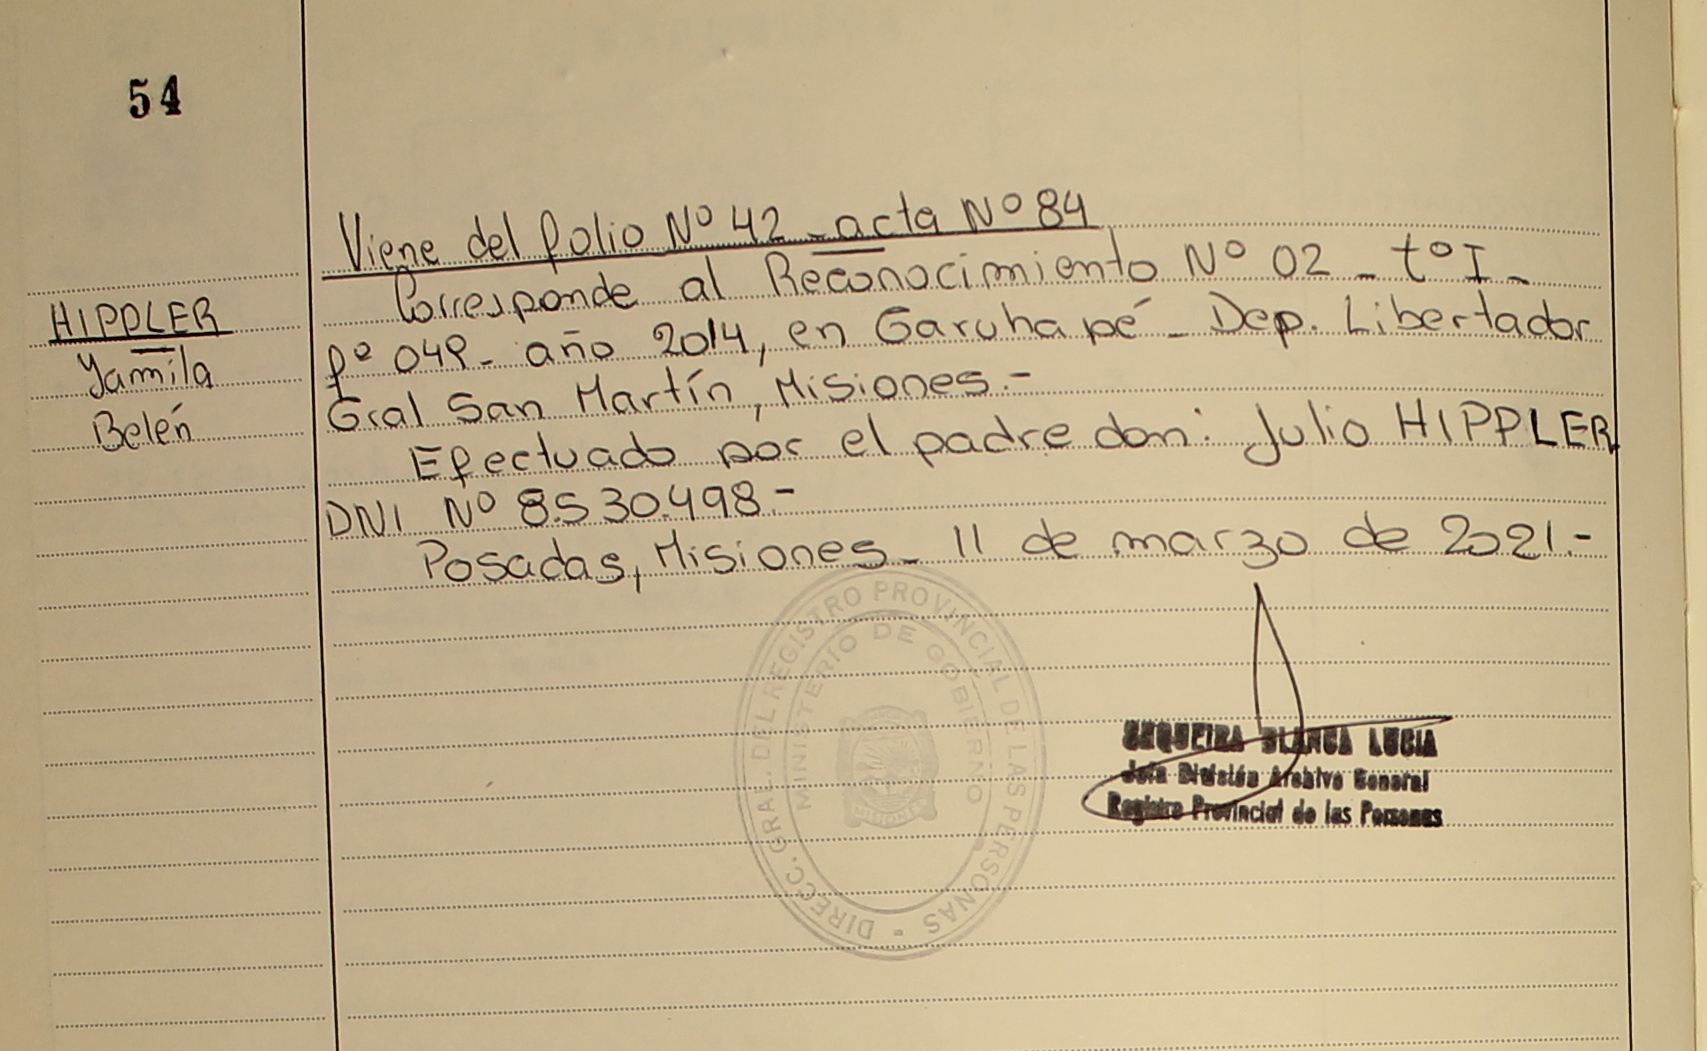 54
HIPPLER
Yamila
Belén
Viene del folio Nº 42 - acta Nº 84
Corresponde al Reconocimiento Nº 02 - tº I -
fº 049 - año 2014, en Garuhapé - Dep. Libertador
Gral San Martín, Misiones.-
Efectuado por el padre don: Julio HIPPLER
DNI Nº 8.530.498.-
Posadas, Misiones - 11 de marzo de 2021.-
DIRECC. GRAL. DEL REGISTRO PROVINCIAL DE LAS PERSONAS -
MINISTERIO DE GOBIERNO
MISIONES
SEQUEIRA BLANCA LUCIA
Jefa División Archivo General
Registro Provincial de las Personas